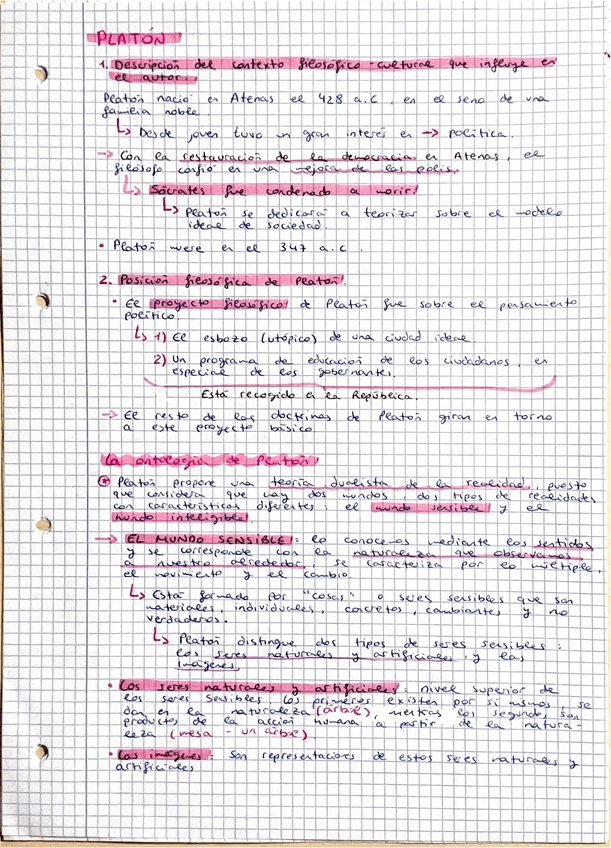 PLATÓN
1. Descripción del contexto filosófico-cultural que influye en
el autor.
Platón nació en Atenas el 428 a.C, en el seno de una
familia noble.
↳ Desde joven tuvo un gran interés en → política.
→ Con la restauración de la democracia en Atenas, el
filósofo confió en una mejora de las polis.
↳ Sócrates fue condenado a morir!
↳ Platón se dedicará a teorizar sobre el modelo
ideal de sociedad.
• Platón muere en el 347 a.C.
2. Posición filosófica de Platón.
• El proyecto filosófico de Platón fue sobre el pensamiento
político
↳ 1) El esbozo (utópico) de una ciudad ideal
2) Un programa de educación de los ciudadanos, en
especial de los gobernantes.
Está recogido en la República.
→ El resto de las doctrinas de Platón giran en torno
a este proyecto básico
La ontología de Platón
Platón propone una teoría dualista de la realidad, puesto
que considera que hay dos mundos, dos tipos de realidades
con características diferentes: el mundo sensible y el
mundo inteligible.
→ EL MUNDO SENSIBLE: lo conocemos mediante los sentidos
y se corresponde con la naturaleza que observamos
a nuestro alrededor, se caracteriza por lo múltiple,
el movimiento y el cambio.
↳ Está formado por "cosas" o seres sensibles que son
materiales, individuales, concretos, cambiantes y no
verdaderos.
↳ Platón distingue dos tipos de seres sensibles:
los seres naturales y artificiales y las
imágenes
• Los seres naturales y artificiales: nivel superior de
los seres sensibles los primeros existen por sí mismos, se
dan en la naturaleza (árbol), mientras los segundos son
productos de la acción humana a partir de la natura-
leza (mesa - un árbol)
• Las imágenes: Son representaciones de estos seres naturales y
artificiales